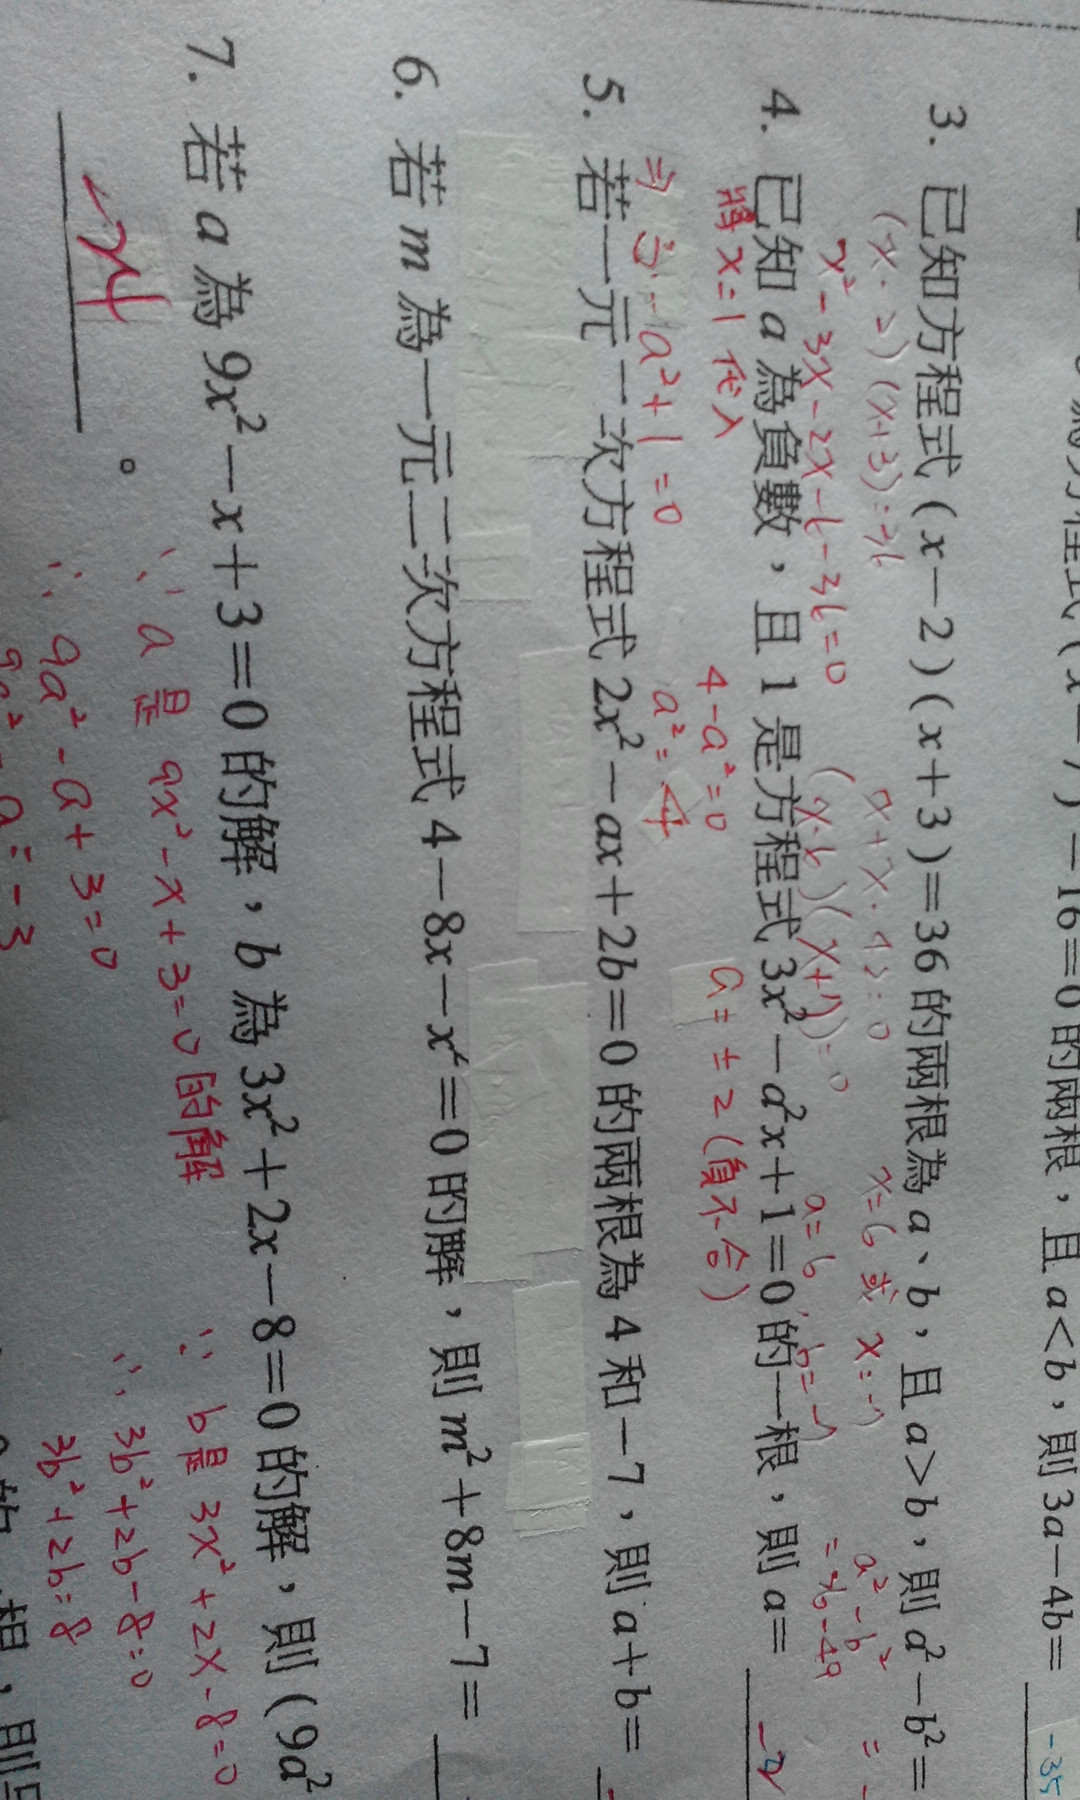 為方程式(x-7)-16=0的兩根，且a<b，則3a-4b=
-35
3. 已知方程式(x-2)(x+3)=36的兩根為a、b，且a>b，則a²-b²=
(x-2)(x+3)=36
x=6或x=-7
a²-b²=
x²-3x-2x-6-36=0
(x-6)(x+7)=0
a=6，b=-7
=36-49
4. 已知a為負數，且1是方程式3x²-a²x+1=0的一根，則a=
-2
將x=1代入
4-a²=0
a=±2(負不合)
⇒3-a²+1=0
a²=4
5. 若一元二次方程式2x²-ax+2b=0的兩根為4和-7，則a+b=
6. 若m為一元二次方程式4-8x-x²=0的解，則m²+8m-7=
7. 若a為9x²-x+3=0的解，b為3x²+2x-8=0的解，則(9a²
∵a是9x²-x+3=0的解
∵b是3x²+2x-8=0
。
∴9a²-a+3=0
∴3b²+2b-8=0
9a²-a=-3
3b²+2b=8